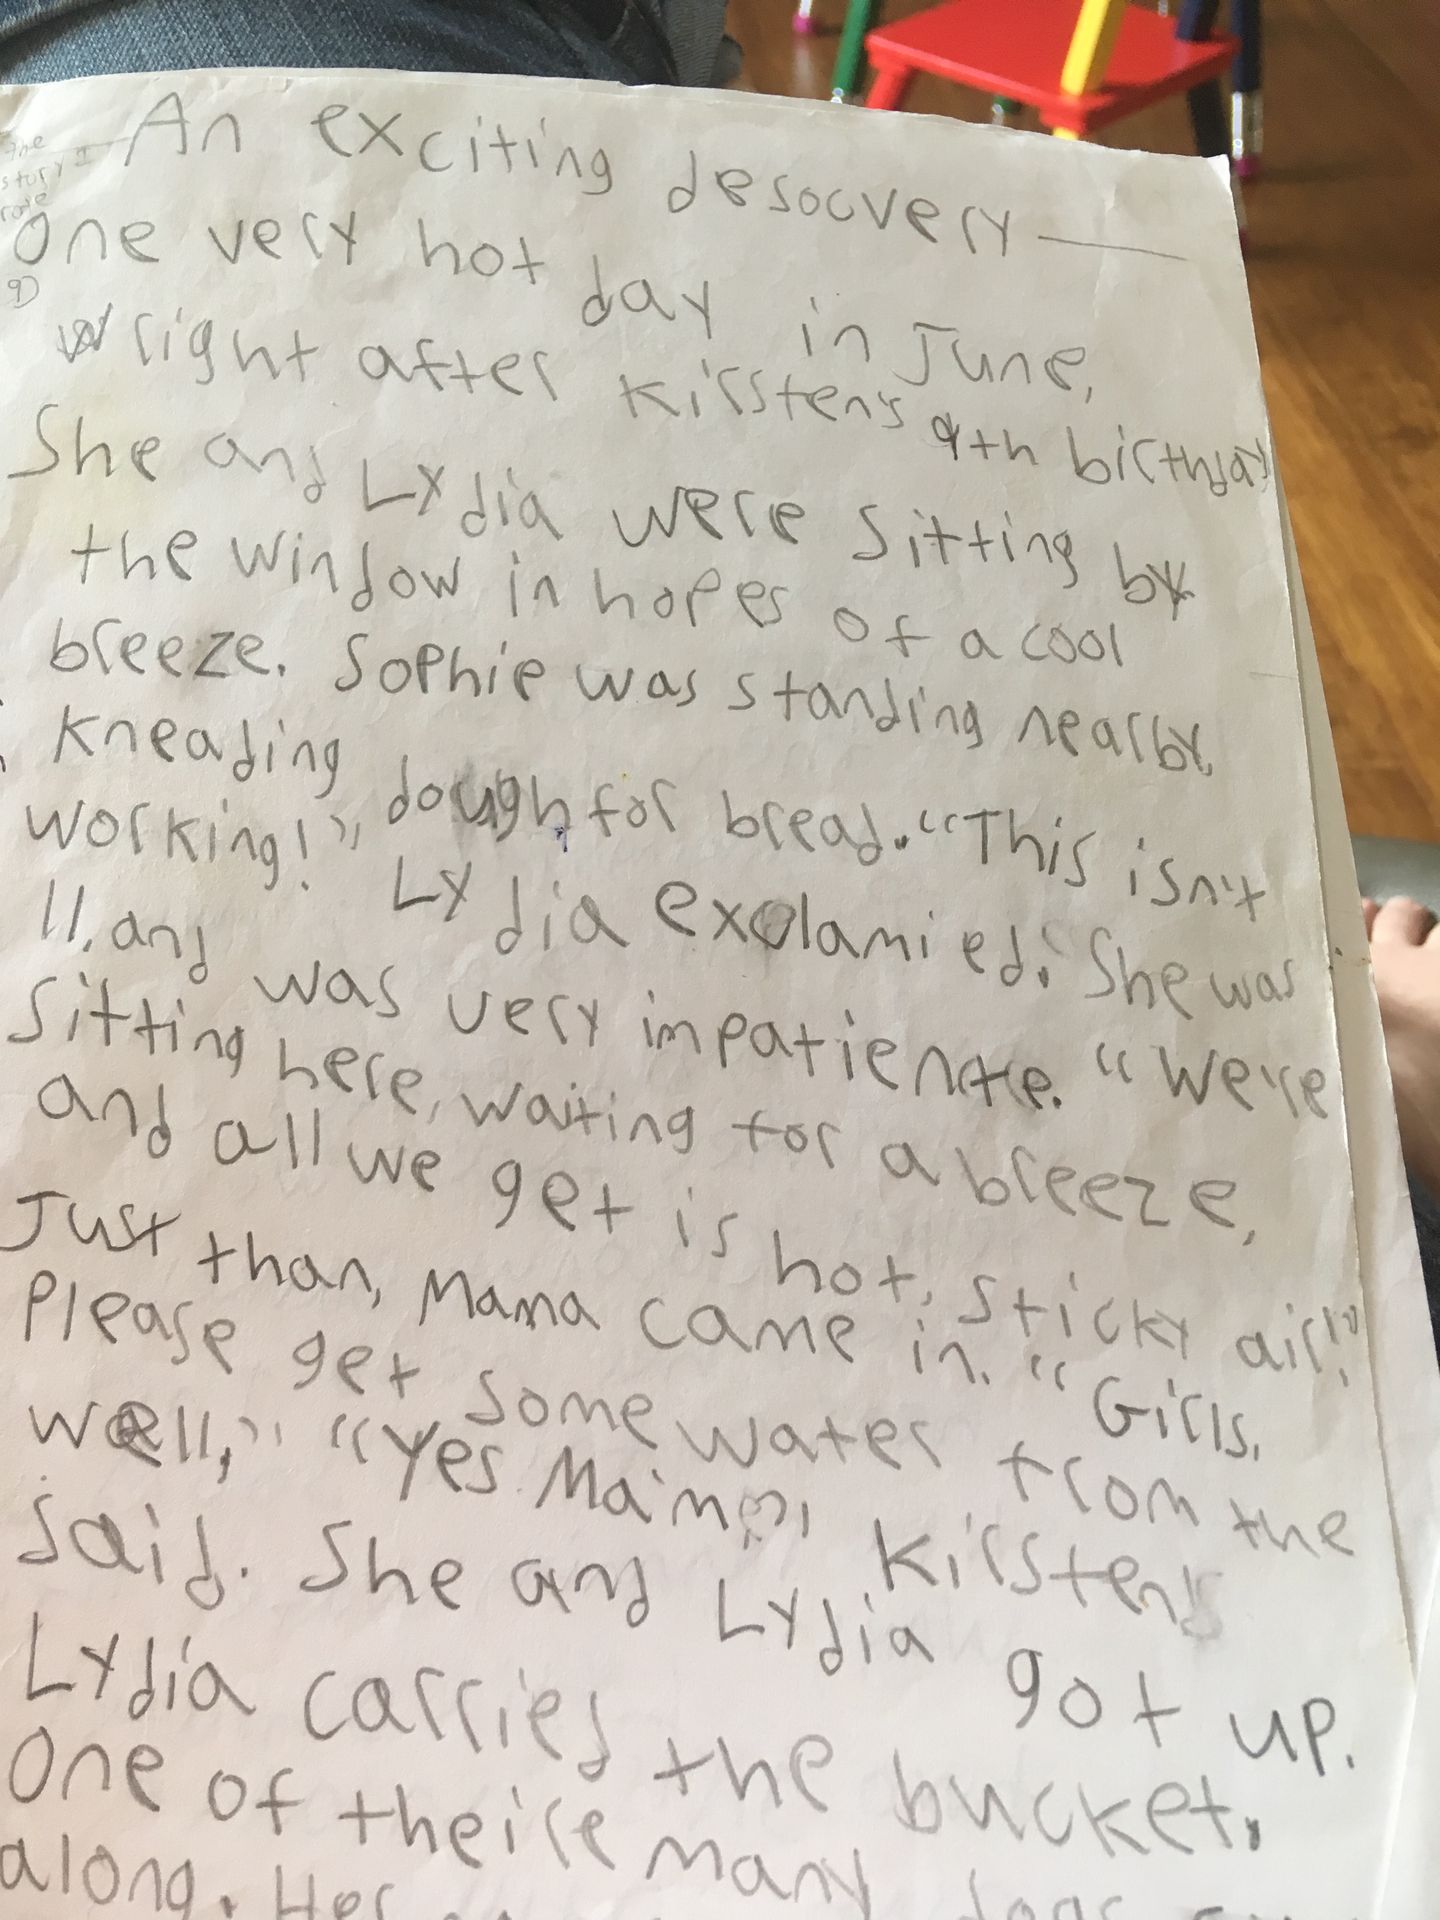 the
story I
An exciting desocvery
One very hot day in June,
wright after Kirsten's 9th birthday
She and Lydia were sitting by
the window in hopes of a cool
breeze. Sophie was standing nearby,
kneading dough for bread. "This isn't
working!", Lydia exclamied. She was
11, and was very impatiente. "We're
sitting here, waiting for a breeze,
and all we get is hot, sticky air!"
Just than, Mama came in. "Girls,
Please get some water from the
well," "Yes Ma'm, Kirsten
said. She and Lydia got up.
Lydia carried the bucket.
One of theire many dogs
along. Her